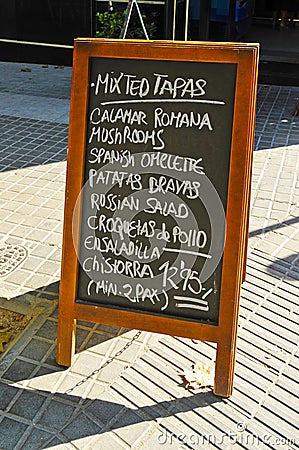 • MIXTED TAPAS
CALAMAR ROMANA
MUSHROOMS
SPANISH OMELETTE
PATATAS BRAVAS
RUSSIAN SALAD
CROQUETAS de POLLO
ENSALADILLA
CHISTORRA 12'95.-
(MIN. 2 PAX)
dreamstime.com